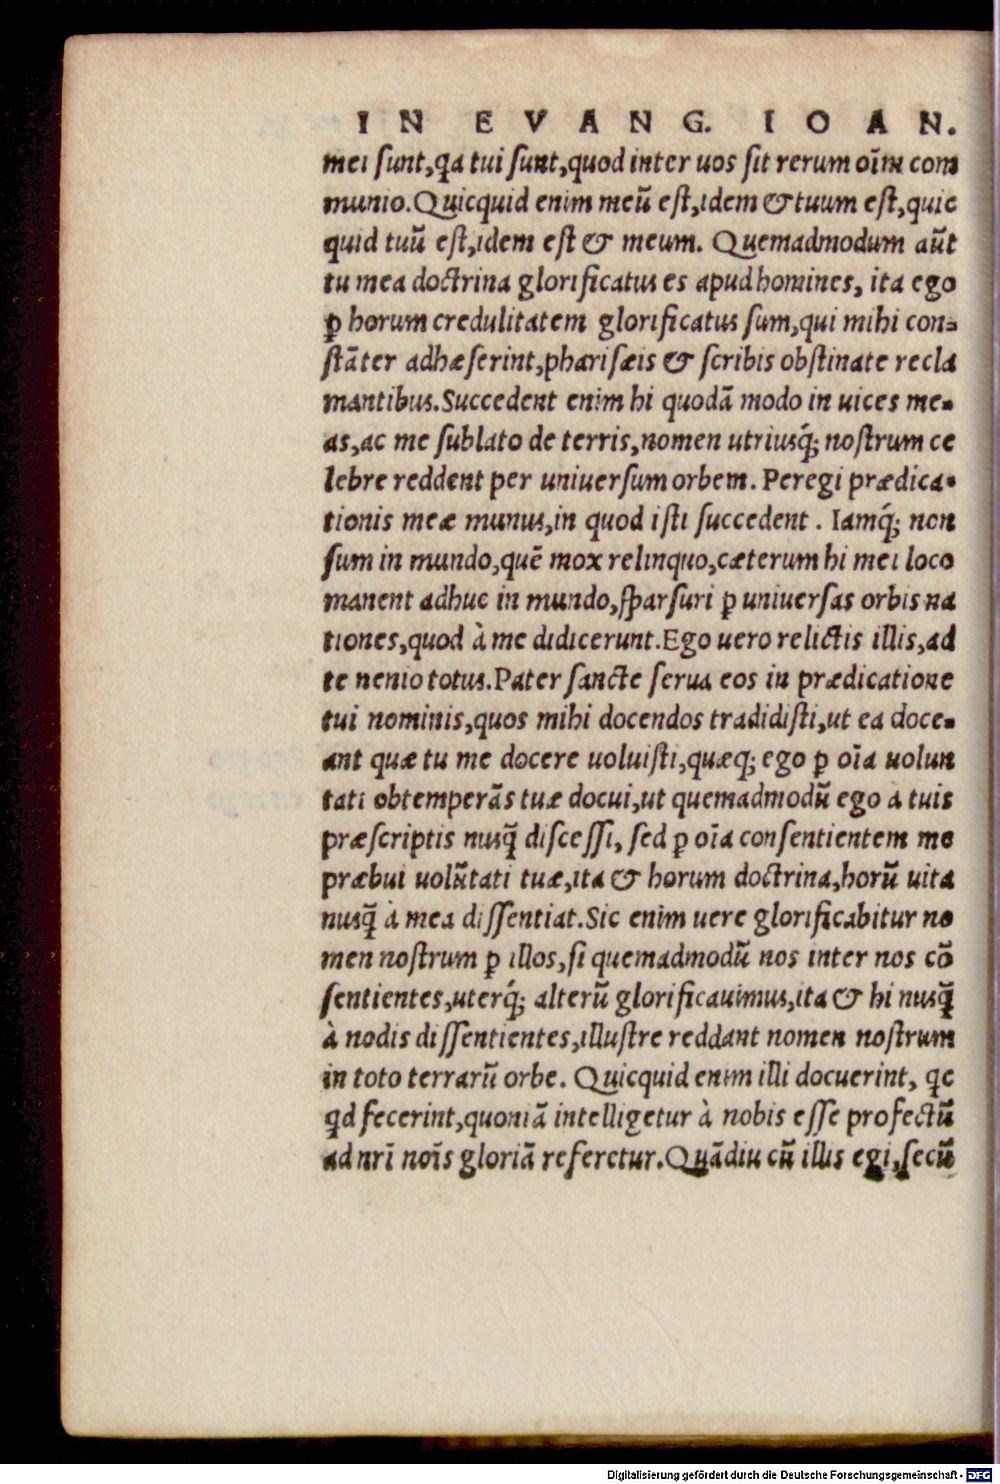 IN EVANG. IOAN.
mei ſunt,qa tui ſunt,quod inter uos ſit rerum oīm com
munio.Quicquid enim meū eſt,idem & tuum eſt,quic
quid tuū eſt,idem eſt & meum. Quemadmodum aūt
tu mea doctrina glorificatus es apud homines, ita ego
ꝑ horum credulitatem glorificatus ſum,qui mihi con-
ſtāter adhæſerint,phariſæis & ſcribis obſtinate recla
mantibus.Succedent enim hi quodā modo in uices me-
as,ac me ſublato de terris,nomen utriuſq́; noſtrum ce
lebre reddent per uniuerſum orbem. Peregi prædica-
tionis meæ munus,in quod iſti ſuccedent. Iamq́; non
ſum in mundo,quē mox relinquo,cæterum hi mei loco
manent adhuc in mundo,ſparſuri ꝑ uniuerſas orbis na
tiones,quod à me didicerunt.Ego uero relictis illis,ad
te nenio totus.Pater ſancte ſerua eos in prædicatione
tui nominis,quos mihi docendos tradidiſti,ut ea doce-
ant quæ tu me docere uoluiſti,quæq; ego ꝑ oīa uolun
tati obtemperās tuæ docui,ut quemadmodū ego a tuis
præſcriptis nuſq̄ diſceſſi, ſed ꝑ oīa conſentientem me
præbui uolūtati tuæ,ita & horum doctrina,horū uita
nuſq̄ à mea diſſentiat.Sic enim uere glorificabitur no
men noſtrum ꝑ illos,ſi quemadmodū nos inter nos cō
ſentientes,uterq́; alterū glorificauimus,ita & hi nuſq̄
à nodis diſſentientes,illuſtre reddant nomen noſtrum
in toto terrarū orbe. Quicquid enim illi docuerint, qc
qd fecerint,quoniā intelligetur à nobis eſſe profectū
ad nr̄i noīs gloriā referetur.Quādiu cū illis egi,ſecū
Digitalisierung gefördert durch die Deutsche Forschungsgemeinschaft - DFG